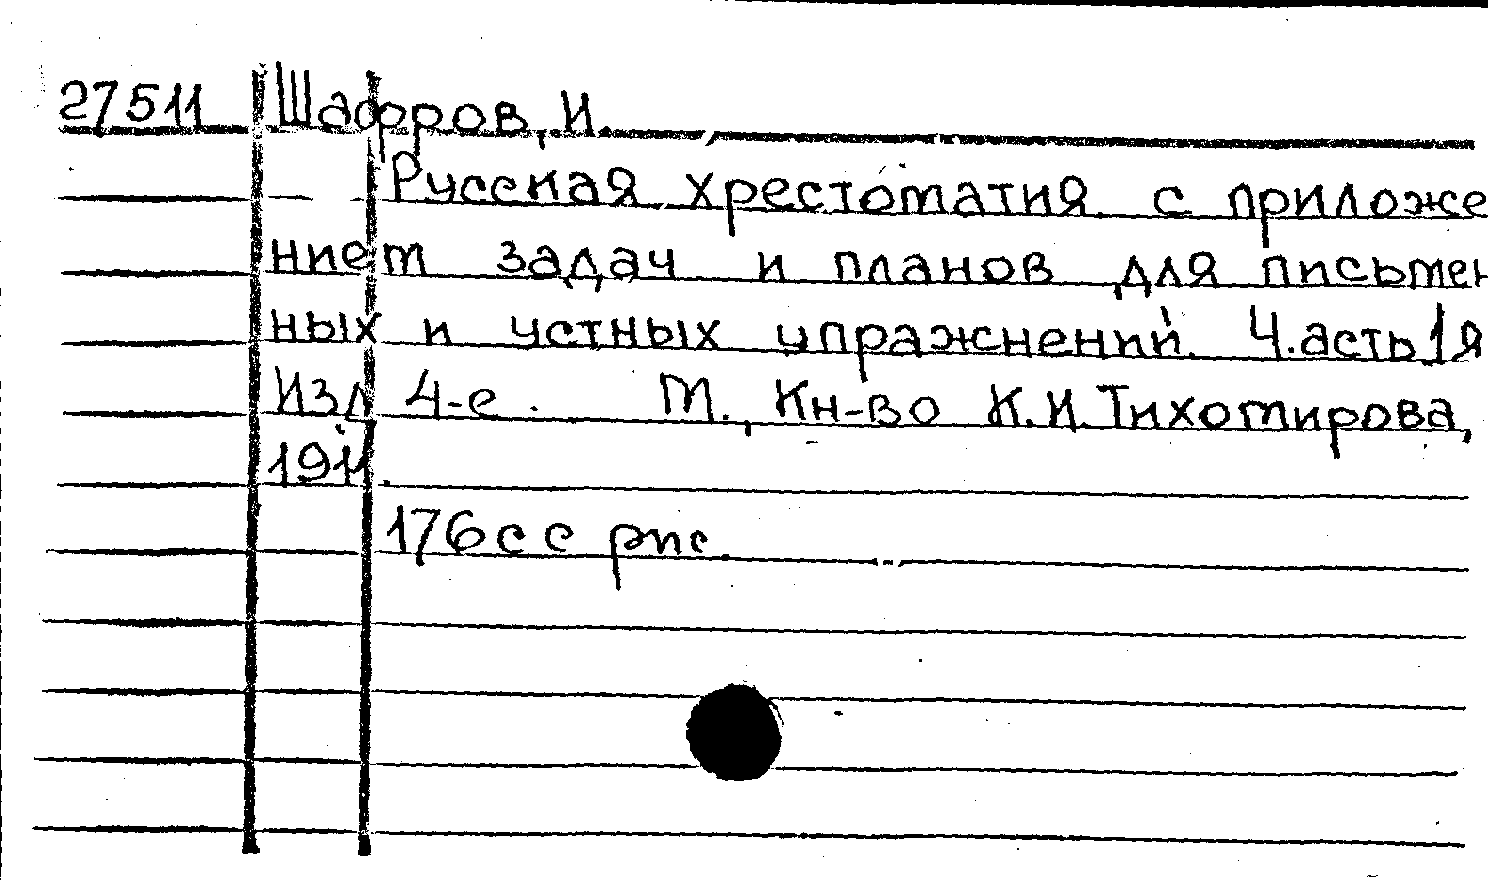 27511 Шафров, И.
Русская хрестоматия с приложе
нием задач и планов для письмен
ных и устных упражнений. Ч.асть 1я
Изд 4-е. М., Кн-во К.И.Тихомирова,
1911.
176с с рис.